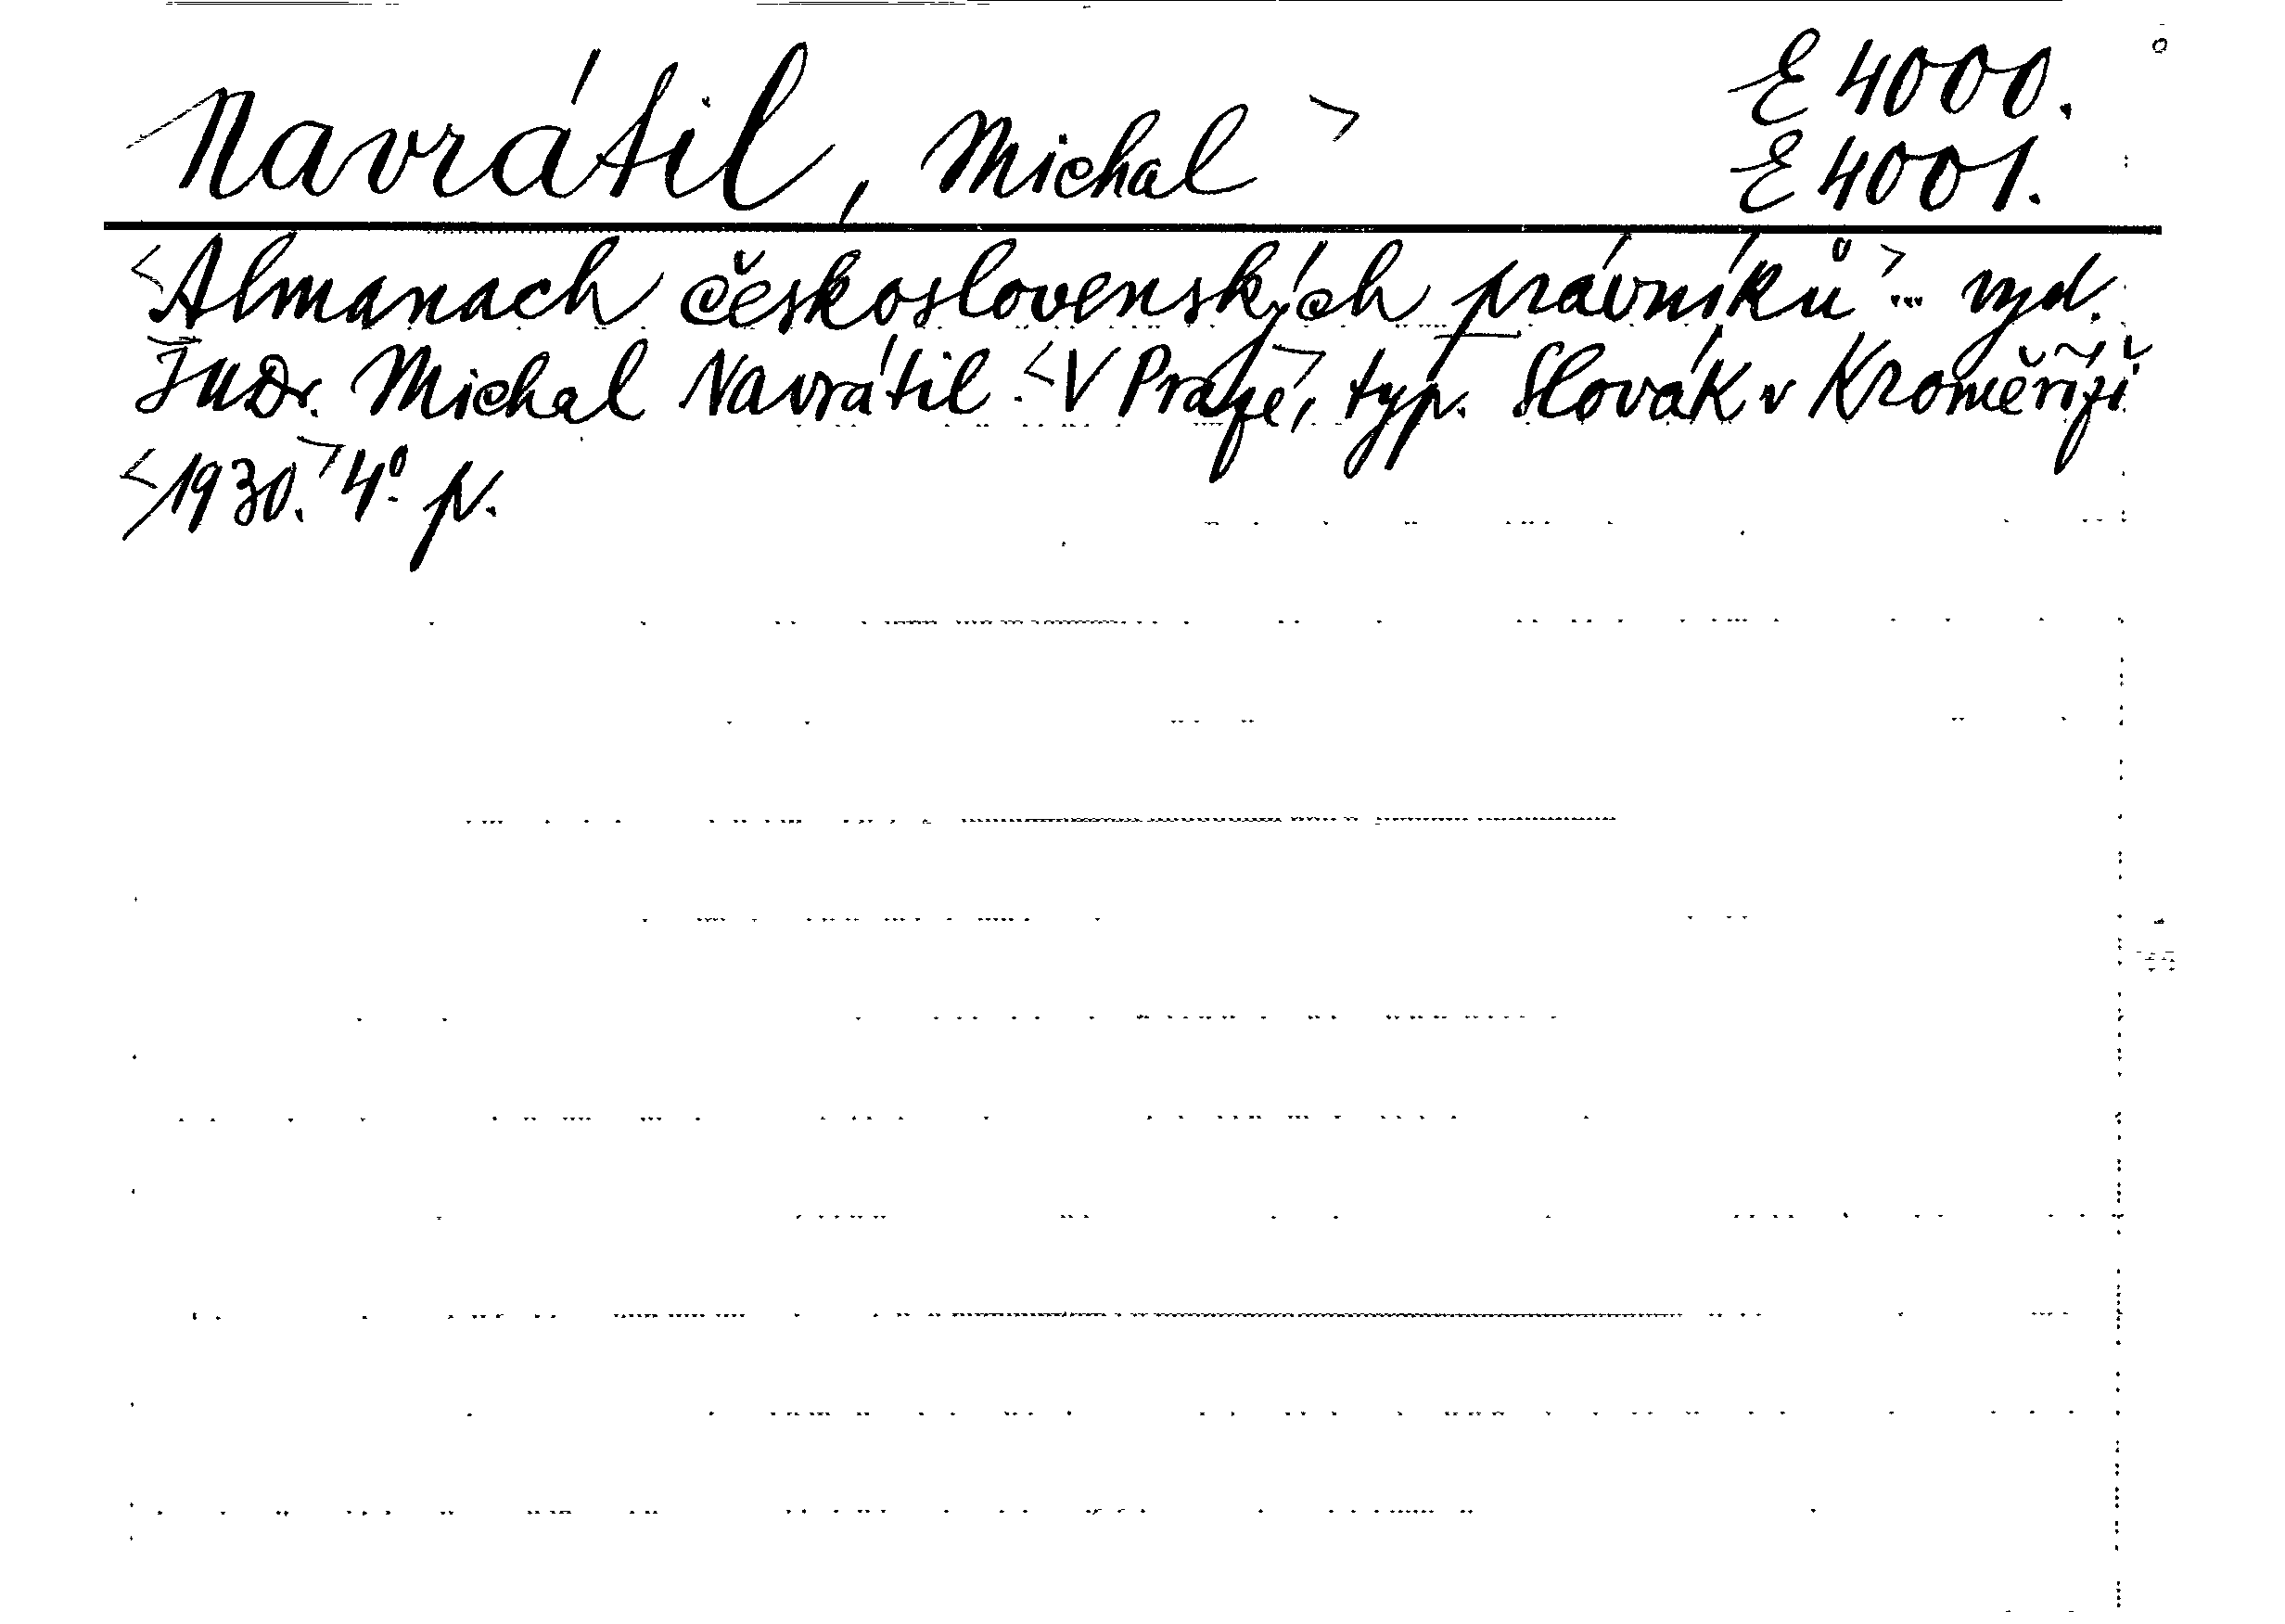 Navrátil, Michal > E 4000.
E 4001.
<Almanach československých právníků> ... vyd.
JuDr. Michal Navrátil. <V Praze>, typ. Slovák v Kroměříži
<1930.> 4° p.